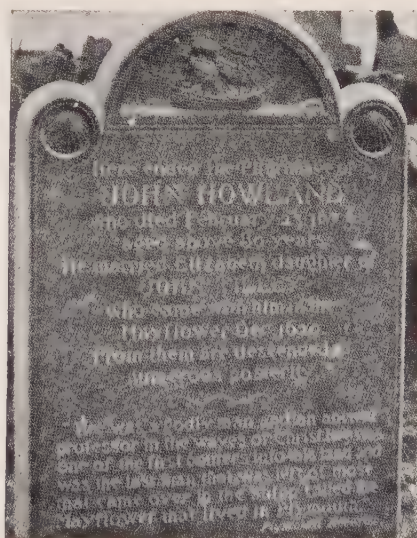 Here ended the Pilgrimage of
JOHN HOWLAND
who died February 23, 167
aged above 80 years.
He married Elizabeth daughter of
JOHN
who came with him in the
Mayflower Dec. 1620
From them are descended a
numerous posterity.
"He was a godly man and an ancient
professor in the wayes of Christ. Hee was
one of the first comers into this land and
was the last man that was left of those
that came over in the
Mayflower that lived in Plymouth."
Plymouth Records